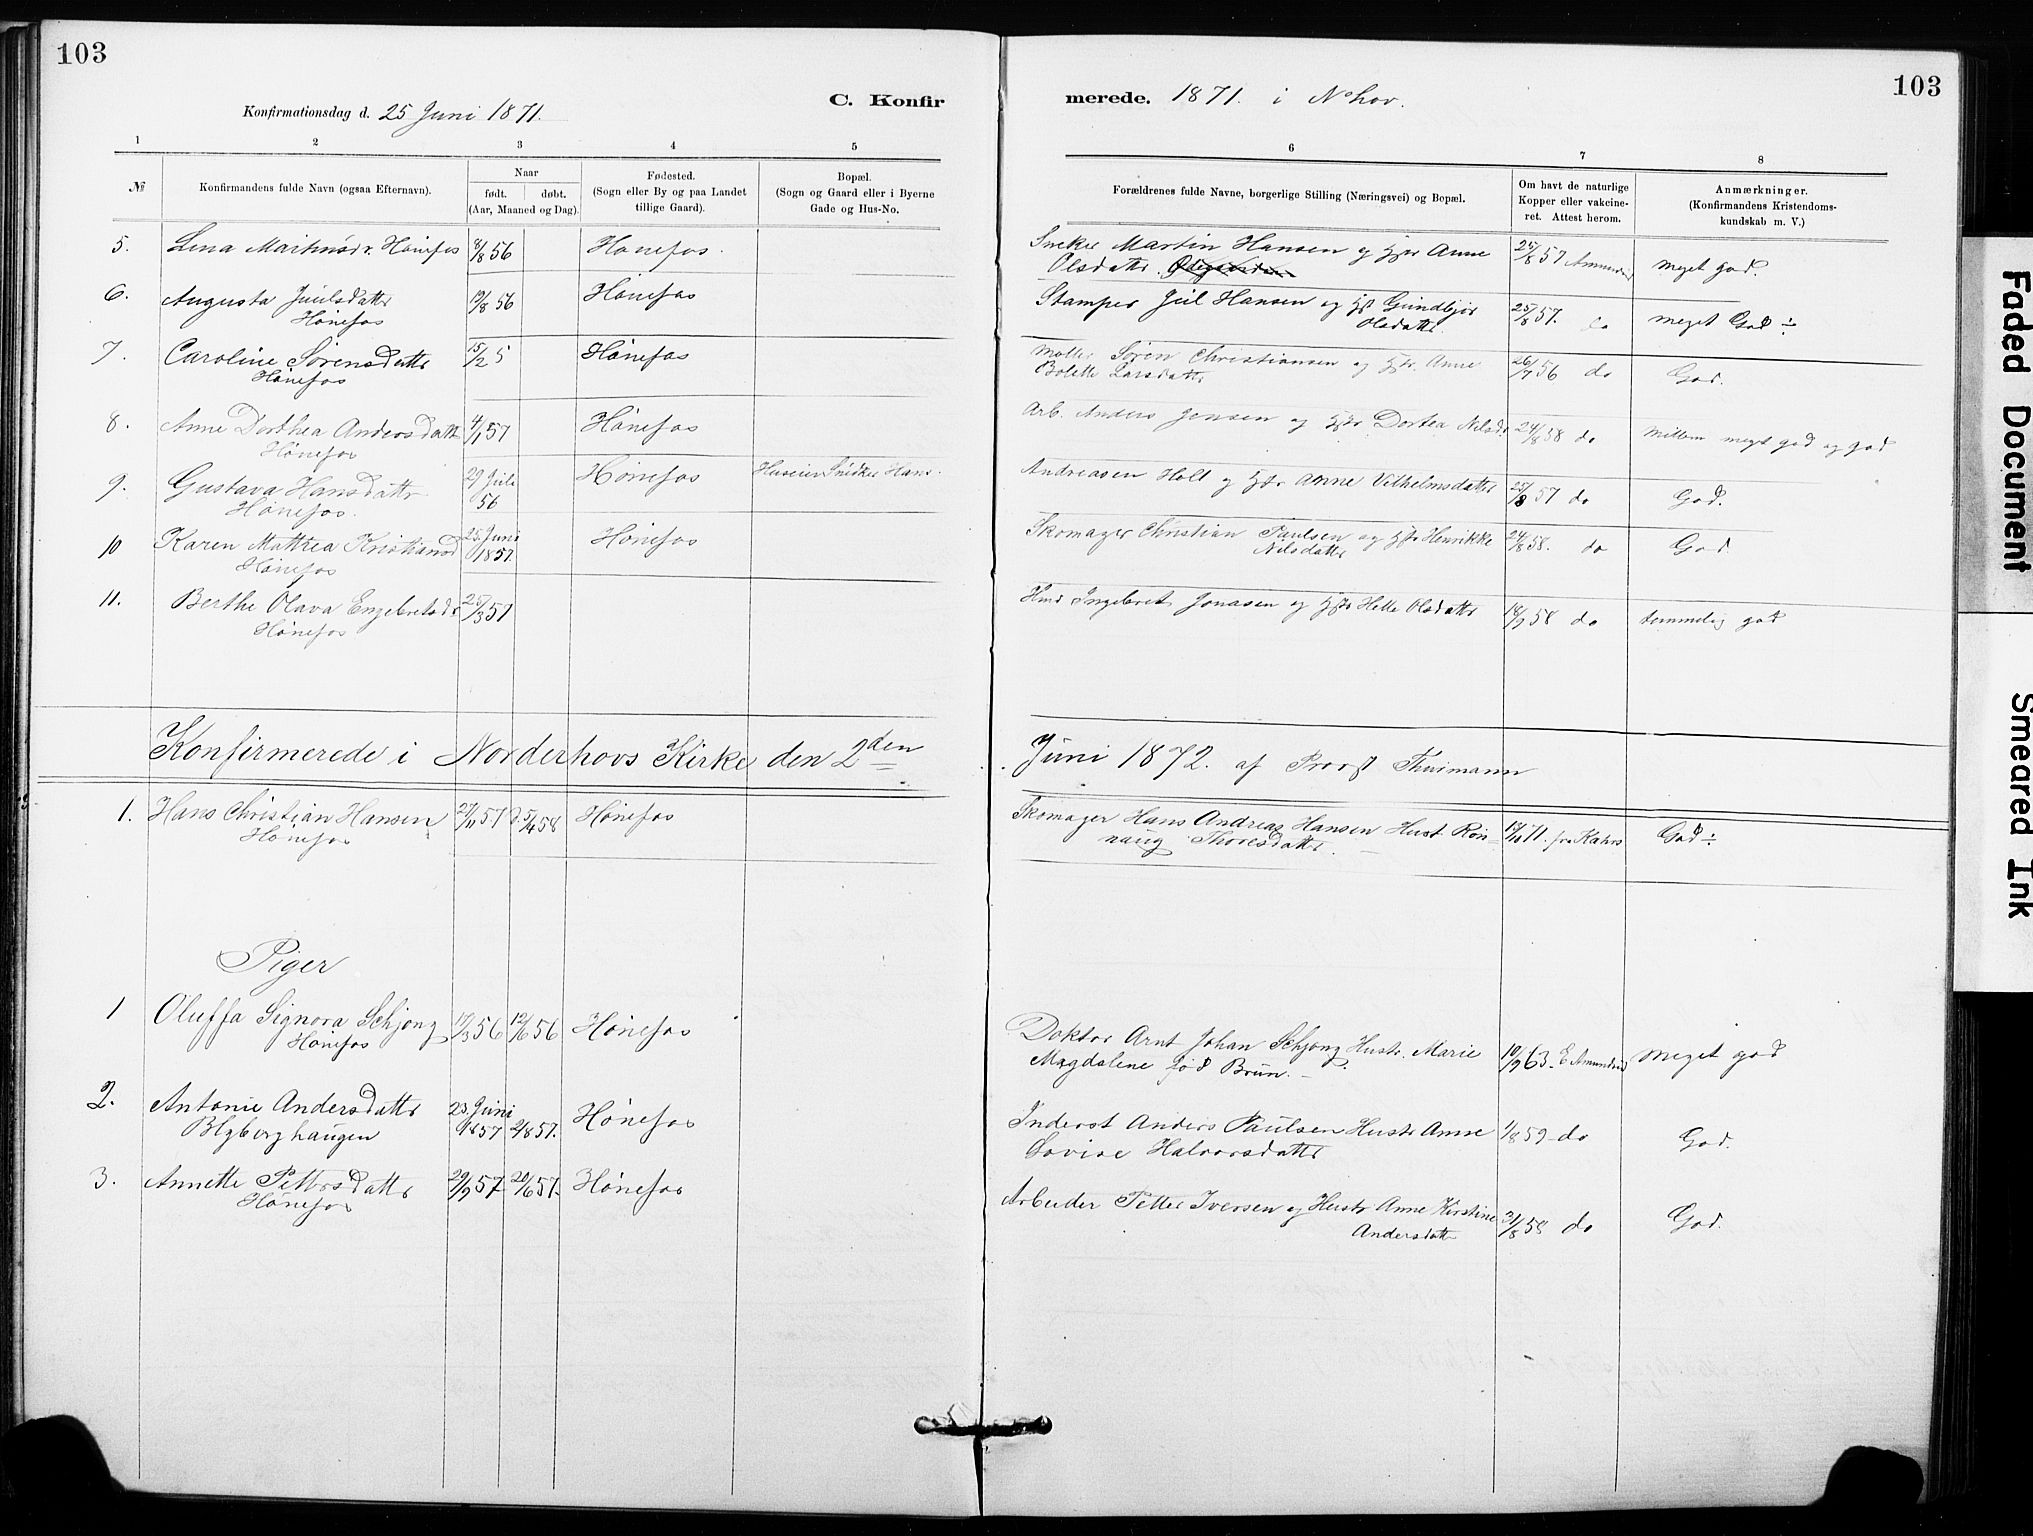 103
103
Konfirmationsdag d. 25 Juni 1871.
C. Konfir
merede. 1871. i Nhov.
1 2 3 4 5
6 7 8
№
Konfirmandens fulde Navn (ogsaa Efternavn).
Naar
født. døbt.
(Aar, Maaned og Dag).
Fødested.
(Sogn eller By og paa Landet
tillige Gaard).
Bopæl.
(Sogn og Gaard eller i Byerne
Gade og Hus-No.
Forældrenes fulde Navne, borgerlige Stilling (Næringsvei) og Bopæl.
Om havt de naturlige
Kopper eller vakcine-
ret. Attest herom.
Anmærkninger.
(Konfirmandens Kristendoms-
kundskab m. V.)
5. Lina Martinsdr. Hønefos 8/8 56 Hønefos.
Sneker Martin Hansen og hst Anne 25/8 57 Amundsen meget god.
Olsdattr.
6. Augusta Juulsdattr 19/8 56 Hønefos
Hønefos
Stamper Juil Hansen og hst Gundbjør 25/8 57. do meget God ÷
Olsdattr.
7. Caroline Sørensdattr 15/2 5 Hønefos
Hønefos
Møller Søren Christiansen og hstr. Anne 26/7 56 do God.
Bolette Larsdattr
8. Anne Dorthea Andersdattr 4/1 57 Hønefos
Hønefos
Arb. Anders Jensen og hstr Dortea Nilsd. 24/8 58 do mellem meget god og god
9. Gustava Hansdattr 29 Juli Hønefos Huseier Snidker Hans
Hønefos. 56
Andreasen Holt og hstr Anne Vilhelmsdattr 25/8 57 do God.
10 Karen Mathea Kristiansd 25. Juni Hønefos
Hønefos 1857.
Skomager Christian Paulsen og hstr Henrikke 24/8 58. do God.
Nilsdattr
11. Berthe Olava Engebretsdr 25/3 57
Hønefos
Hmd Ingebret Jonasen og hstr Helle Olsdattr 18/9 58 do temmelig god
Konfirmerede i Norderhovs Kirke den 2den
Juni 1872. af Provst Thurmann
1. Hans Christian Hansen 27/11 57 d. 5/4 58 Hønefos
Hønefos
Skomager Hans Andreas Hansen Hust. Røn- 17/10 71. fra Kahrs God ÷
naug Thoresdattr.
Piger
1 Oluffa Signora Schjong 17/3 56 12/6 56 Hønefos
Hønefos
Doktor Arnt Johan Schjong Hustr. Marie 10/9 63. E. Amundsen meget god
Magdalene fød Brun. –
2. Antonie Andersdattr 23. Juni Hønefos
Blyberghaugen 1857 2/8 57.
Inderst Anders Paulsen Hustr Anne 1/8 59 do God.
Lovise Halvorsdattr
3. Annette Pettersdattr 29/9 57 20/6 57. Hønefos
Hønefos
Arbeider Petter Iversen og Hustr Anne Kirstine 31/8 58 do God.
Andersdattr
Faded Document
Smeared Ink